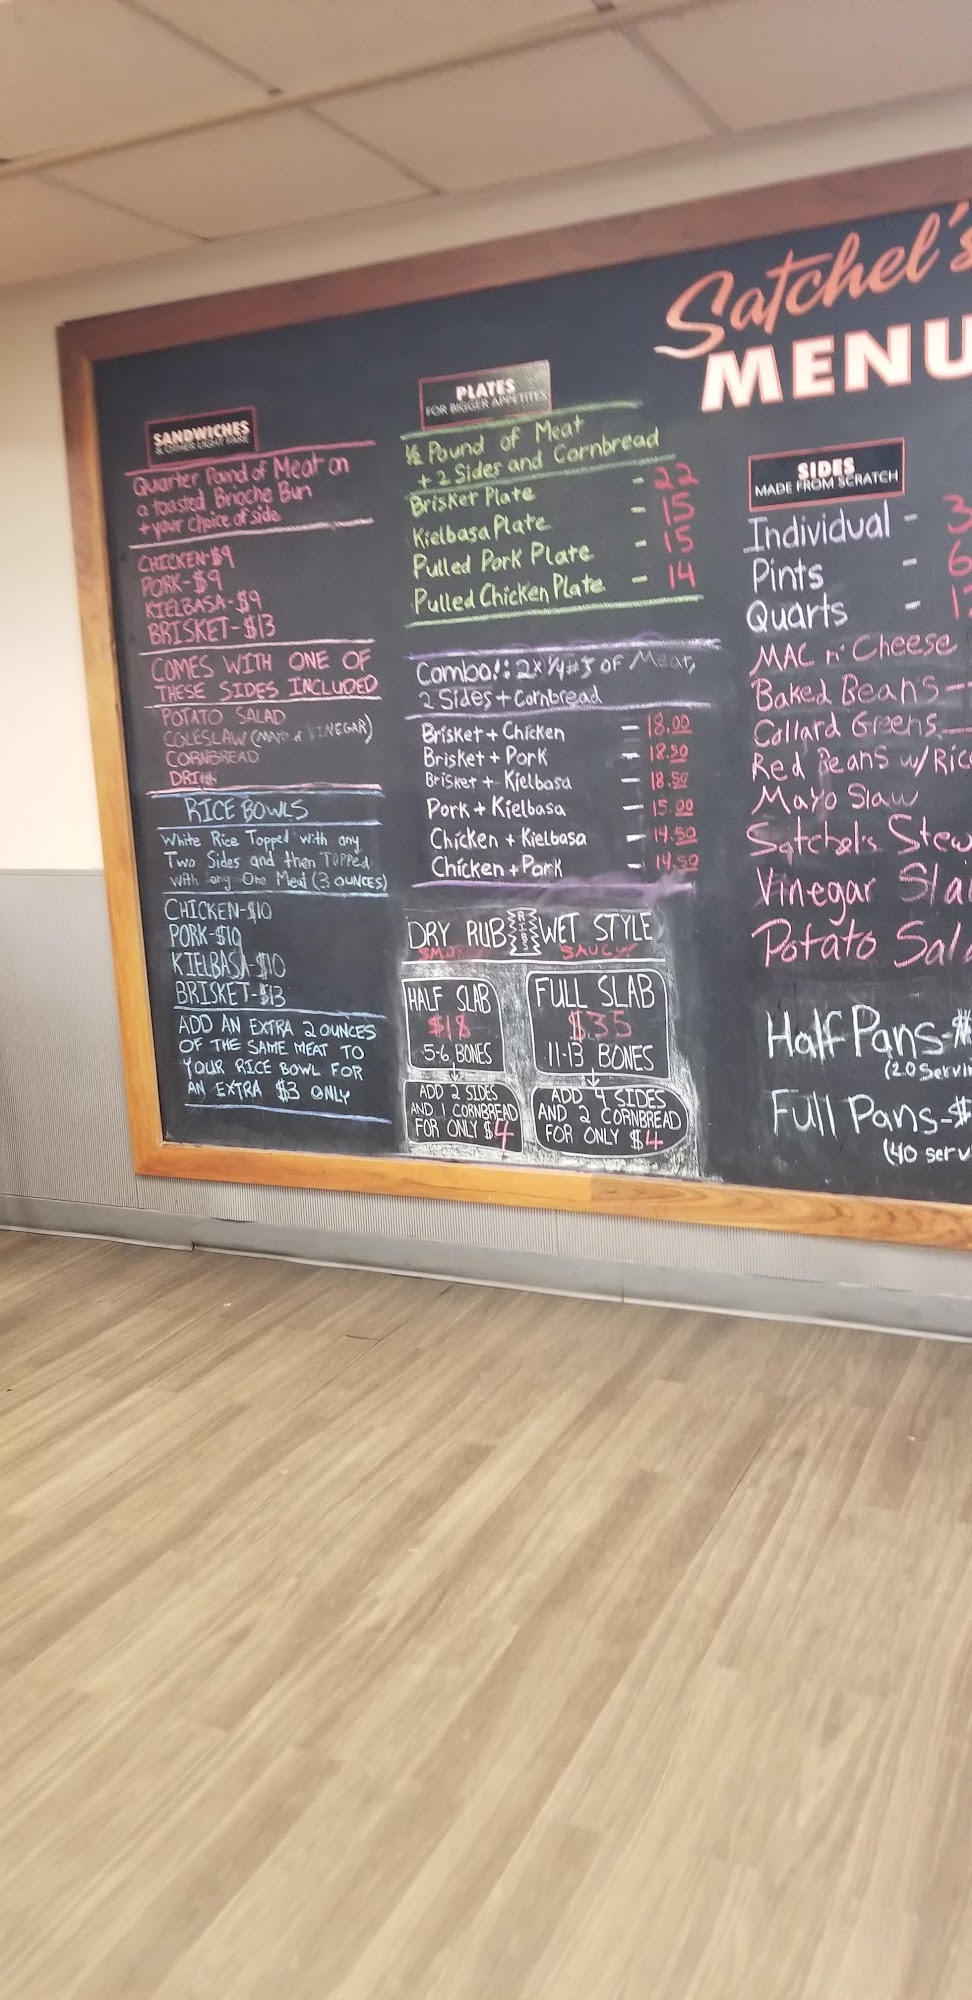 Satchel's
MENU
SANDWICHES
& OTHER LIGHT FARE
Quarter Pound of Meat on
a toasted Brioche Bun
+ your choice of side
CHICKEN-$9
PORK-$9
KIELBASA-$9
BRISKET-$13
COMES WITH ONE OF
THESE SIDES INCLUDED
POTATO SALAD
COLESLAW (MAYO & VINEGAR)
CORNBREAD
DRINK
RICE BOWLS
White Rice Topped with any
Two Sides and then TOPPED
with any One Meat (3 OUNCES)
CHICKEN-$10
PORK-$10
KIELBASA-$10
BRISKET-$13
ADD AN EXTRA 2 OUNCES
OF THE SAME MEAT TO
YOUR RICE BOWL FOR
AN EXTRA $3 ONLY
PLATES
FOR BIGGER APPETITES
½ Pound of Meat
+ 2 Sides and Cornbread
Brisket Plate - 22
Kielbasa Plate - 15
Pulled Pork Plate - 15
Pulled Chicken Plate - 14
Combo!: 2x 1/4#'s OF Meat,
2 Sides + Cornbread
Brisket + Chicken - 18.00
Brisket + Pork - 18.50
Brisket + Kielbasa - 18.50
Pork + Kielbasa - 15.00
Chicken + Kielbasa - 14.50
Chicken + Pork - 14.50
DRY RUB RIBS WET STYLE
SMOKY SAUCY
HALF SLAB
$18
5-6 BONES
ADD 2 SIDES
AND 1 CORNBREAD
FOR ONLY $4
FULL SLAB
$35
11-13 BONES
ADD 4 SIDES
AND 2 CORNBREAD
FOR ONLY $4
SIDES
MADE FROM SCRATCH
Individual - 3
Pints - 6
Quarts - 1
MAC n' Cheese
Baked Beans
Collard Greens
Red Beans w/ Ric
Mayo Slaw
Satchel's Stew
Vinegar Sla
Potato Sala
Half Pans-$
(20 Servin
Full Pans-$
(40 serv